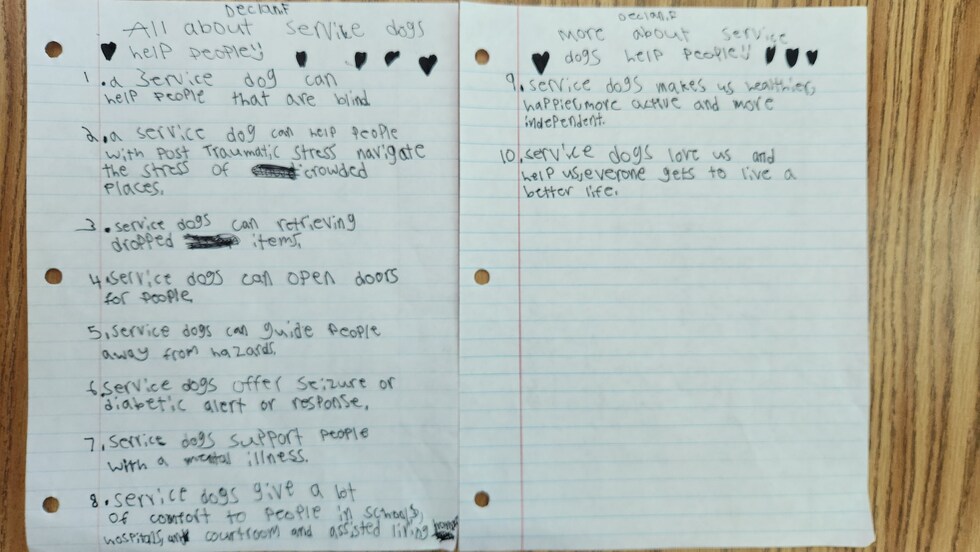 Declan.F
All about service dogs
help people!!
1. a service dog can
help people that are blind
2. a service dog can help people
with post traumatic stress navigate
the stress of crowded
places.
3. service dogs can retrieving
dropped items.
4. service dogs can open doors
for people.
5. service dogs can guide people
away from hazards.
6. service dogs offer seizure or
diabetic alert or response.
7. service dogs support people
with a mental illness.
8. service dogs give a lot
of comfort to people in schools,
hospitals, and courtroom and assisted living
Declan.F
more about service
dogs help people!!
9. service dogs makes us healthier,
happier, more active and more
independent.
10. service dogs love us and
help us, everone gets to live a
better life.